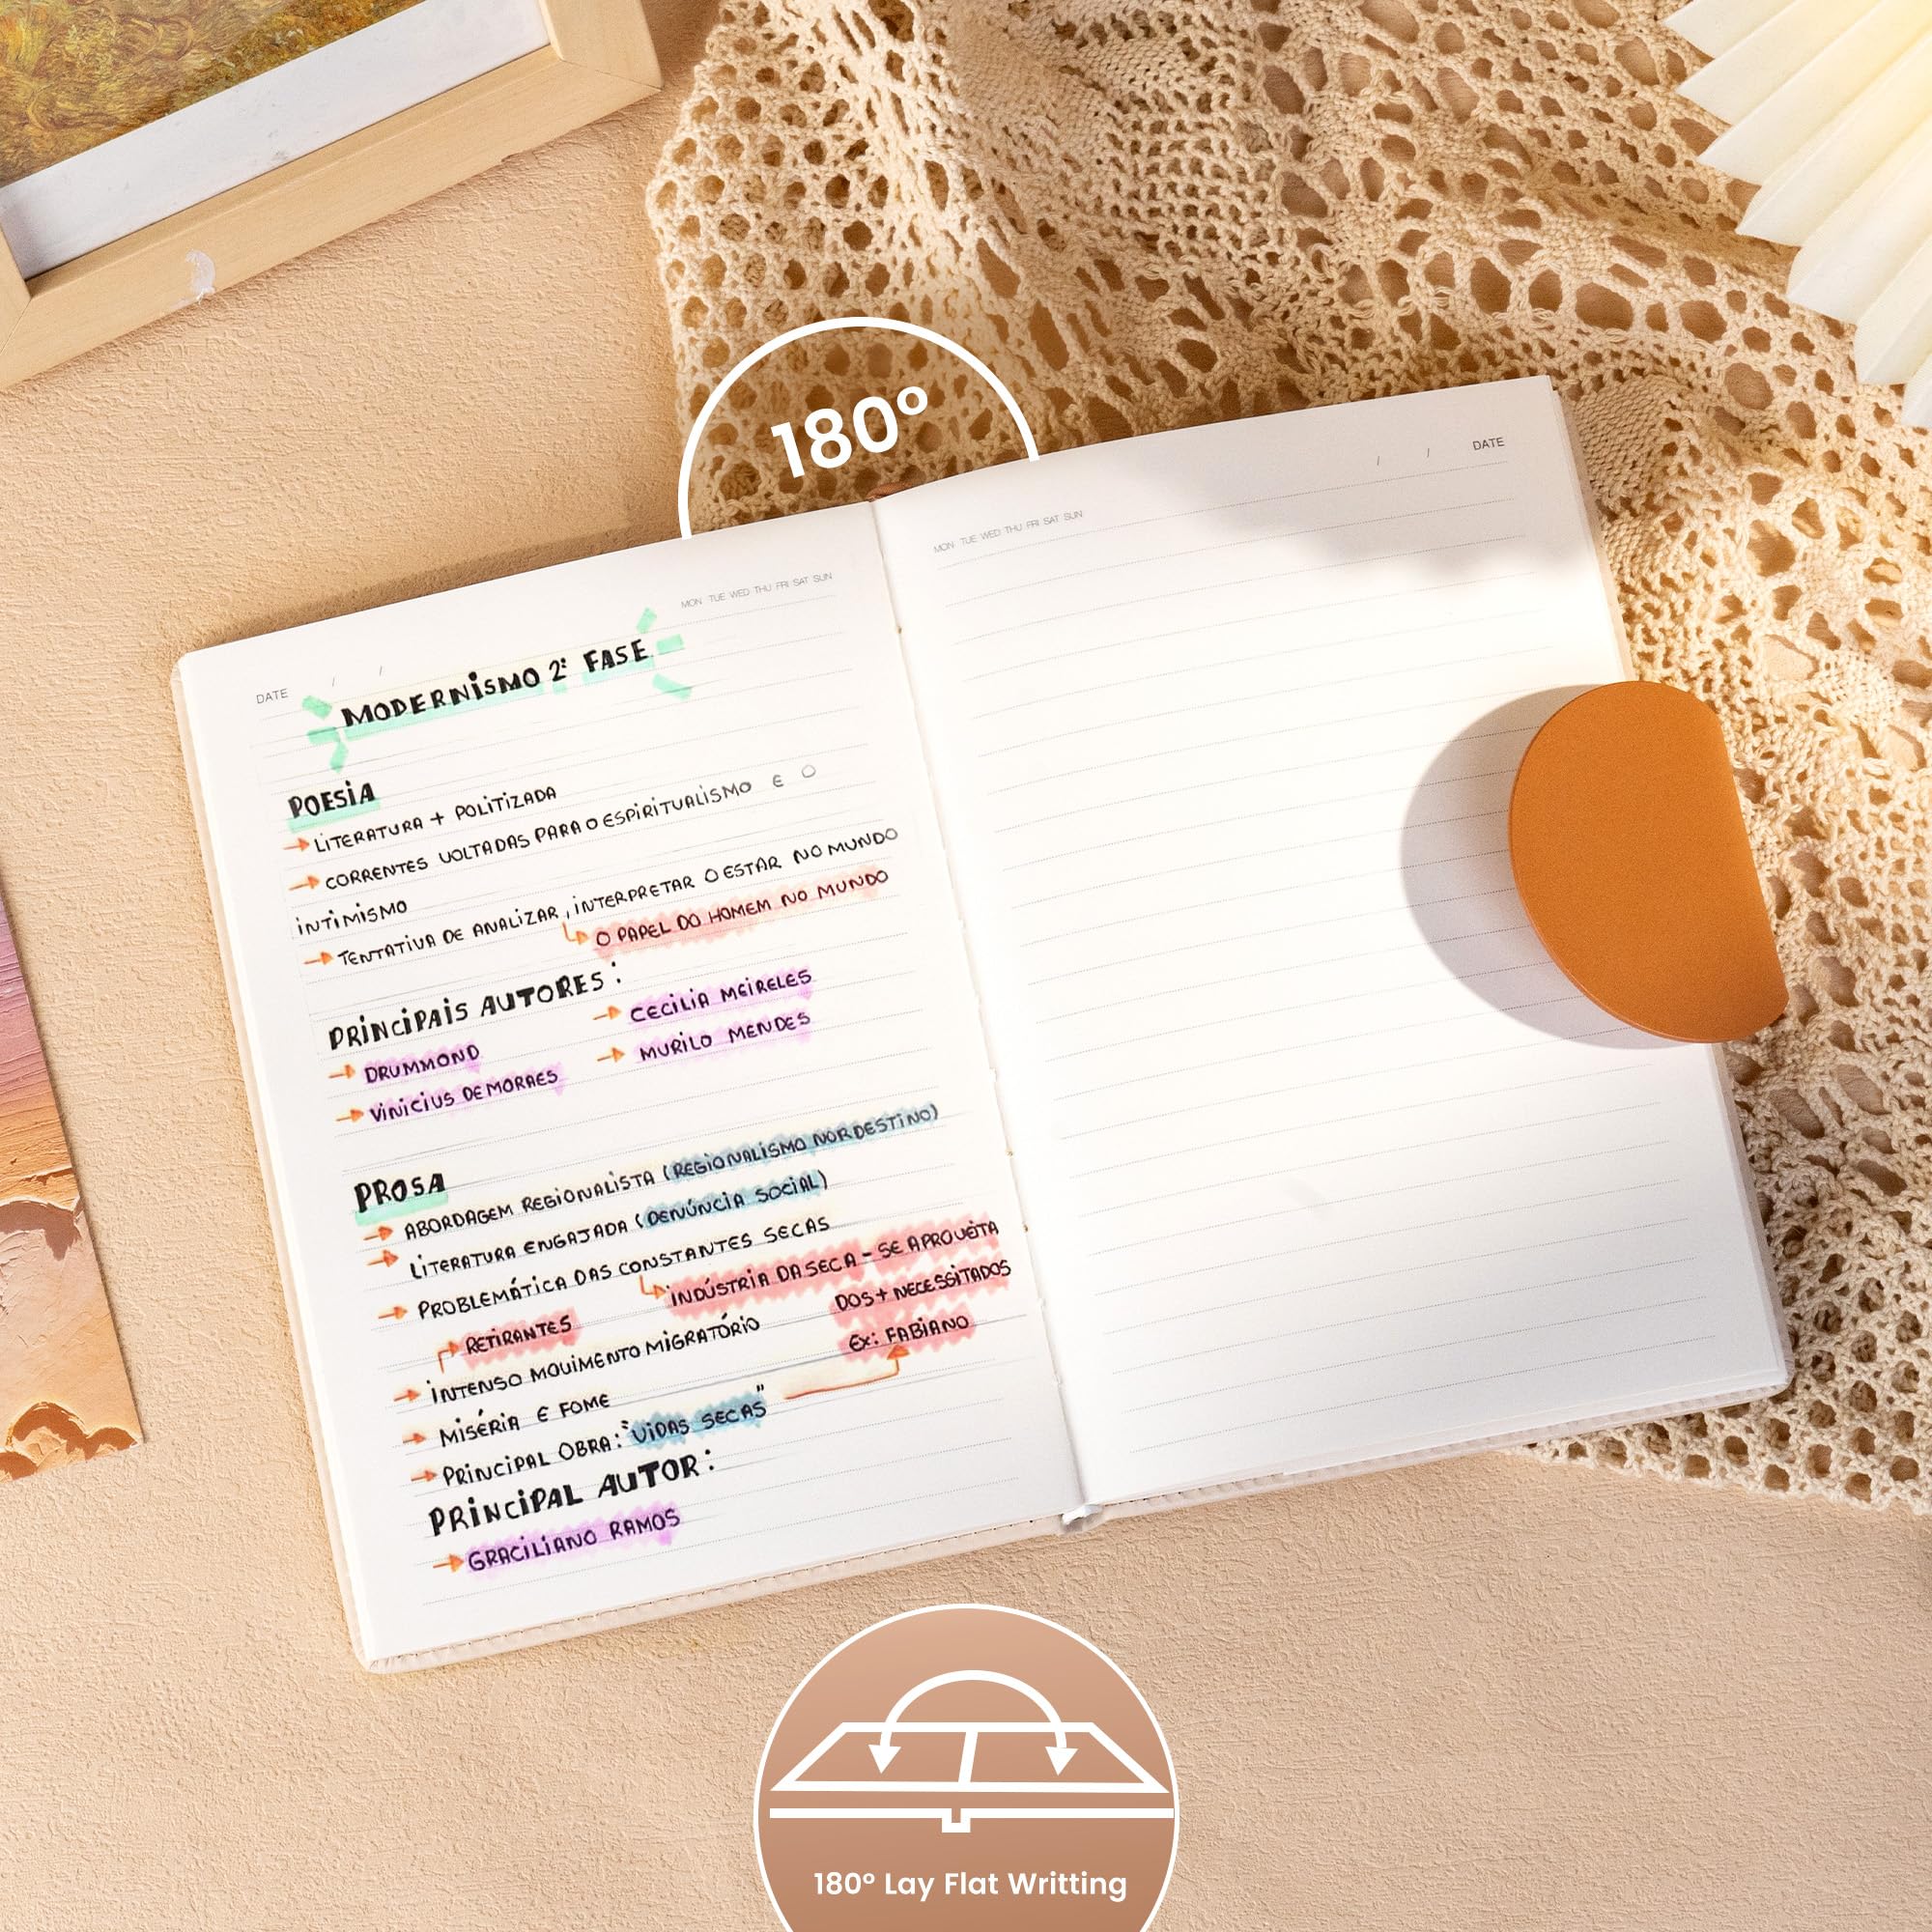 180º
DATE / /
MON TUE WED THU FRI SAT SUN
MODERNISMO 2ª FASE
POESIA
→ LITERATURA + POLITIZADA
→ CORRENTES VOLTADAS PARA O ESPIRITUALISMO E O
INTIMISMO
→ TENTATIVA DE ANALIZAR, INTERPRETAR O ESTAR NO MUNDO
↳ O PAPEL DO HOMEM NO MUNDO
PRINCIPAIS AUTORES:
→ DRUMMOND → CECILIA MEIRELES
→ VINICIUS DE MORAES → MURILO MENDES
PROSA
→ ABORDAGEM REGIONALISTA (REGIONALISMO NORDESTINO)
→ LITERATURA ENGAJADA (DENÚNCIA SOCIAL)
→ PROBLEMÁTICA DAS CONSTANTES SECAS
↳ INDÚSTRIA DA SECA - SE APROVEITA
DOS + NECESSITADOS
EX: FABIANO
RETIRANTES
→ INTENSO MOVIMENTO MIGRATÓRIO
→ MISÉRIA E FOME
→ PRINCIPAL OBRA: "VIDAS SECAS"
PRINCIPAL AUTOR:
→ GRACILIANO RAMOS
/ / DATE
MON TUE WED THU FRI SAT SUN
180º Lay Flat Writting